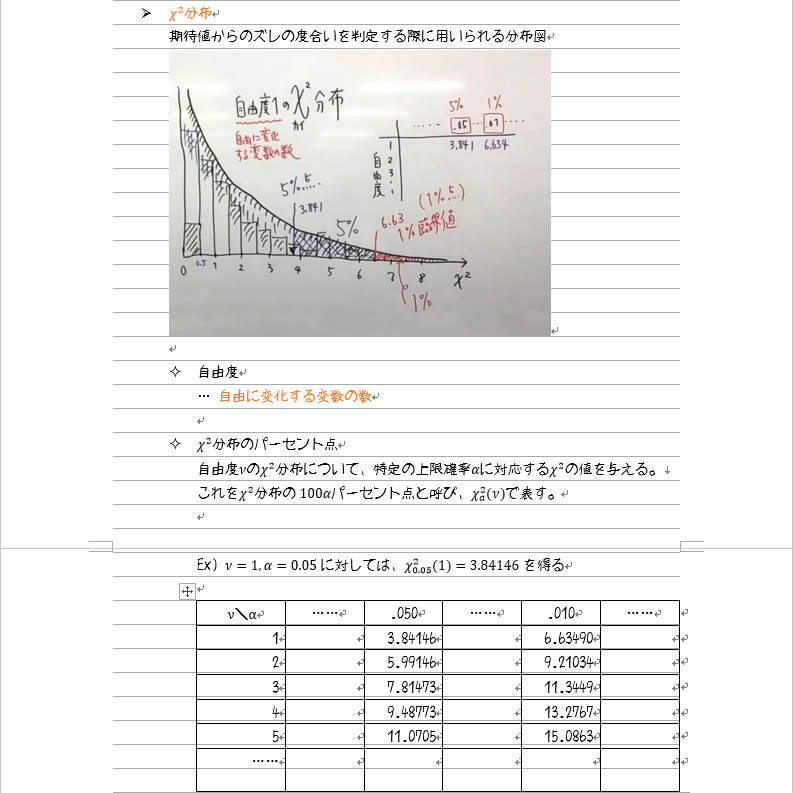 ➤ χ²分布
期待値からのズレの度合いを判定する際に用いられる分布図
自由度1のχ²分布
カイ
自由に変化
する変数の数
5% 1%
…… .05 … .01 ……
3.841 6.634
1
2
3
自由度
5%点
3.841
5%
(1%点)
6.63
1%臨界値
1%
0 0.5 1 2 3 4 5 6 7 8 χ²
✧ 自由度
… 自由に変化する変数の数
✧ χ²分布のパーセント点
自由度νのχ²分布について、特定の上限確率αに対応するχ²の値を与える。
これをχ²分布の 100αパーセント点と呼び、χ²α(ν)で表す。
Ex) ν = 1, α = 0.05 に対しては、χ²0.05(1) = 3.84146 を得る
ν＼α …… .050 …… .010 ……
1 3.84146 6.63490
2 5.99146 9.21034
3 7.81473 11.3449
4 9.48773 13.2767
5 11.0705 15.0863
……